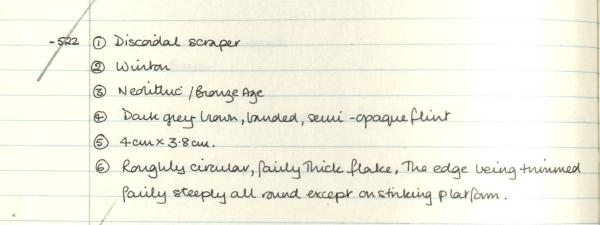 -522 ① Discoidal scraper
② Winton
③ Neolithic / Bronze Age
④ Dark grey brown, banded, semi-opaque flint
⑤ 4cm x 3.8cm.
⑥ Roughly circular, fairly thick flake, The edge being trimmed
fairly steeply all round except on striking platform.